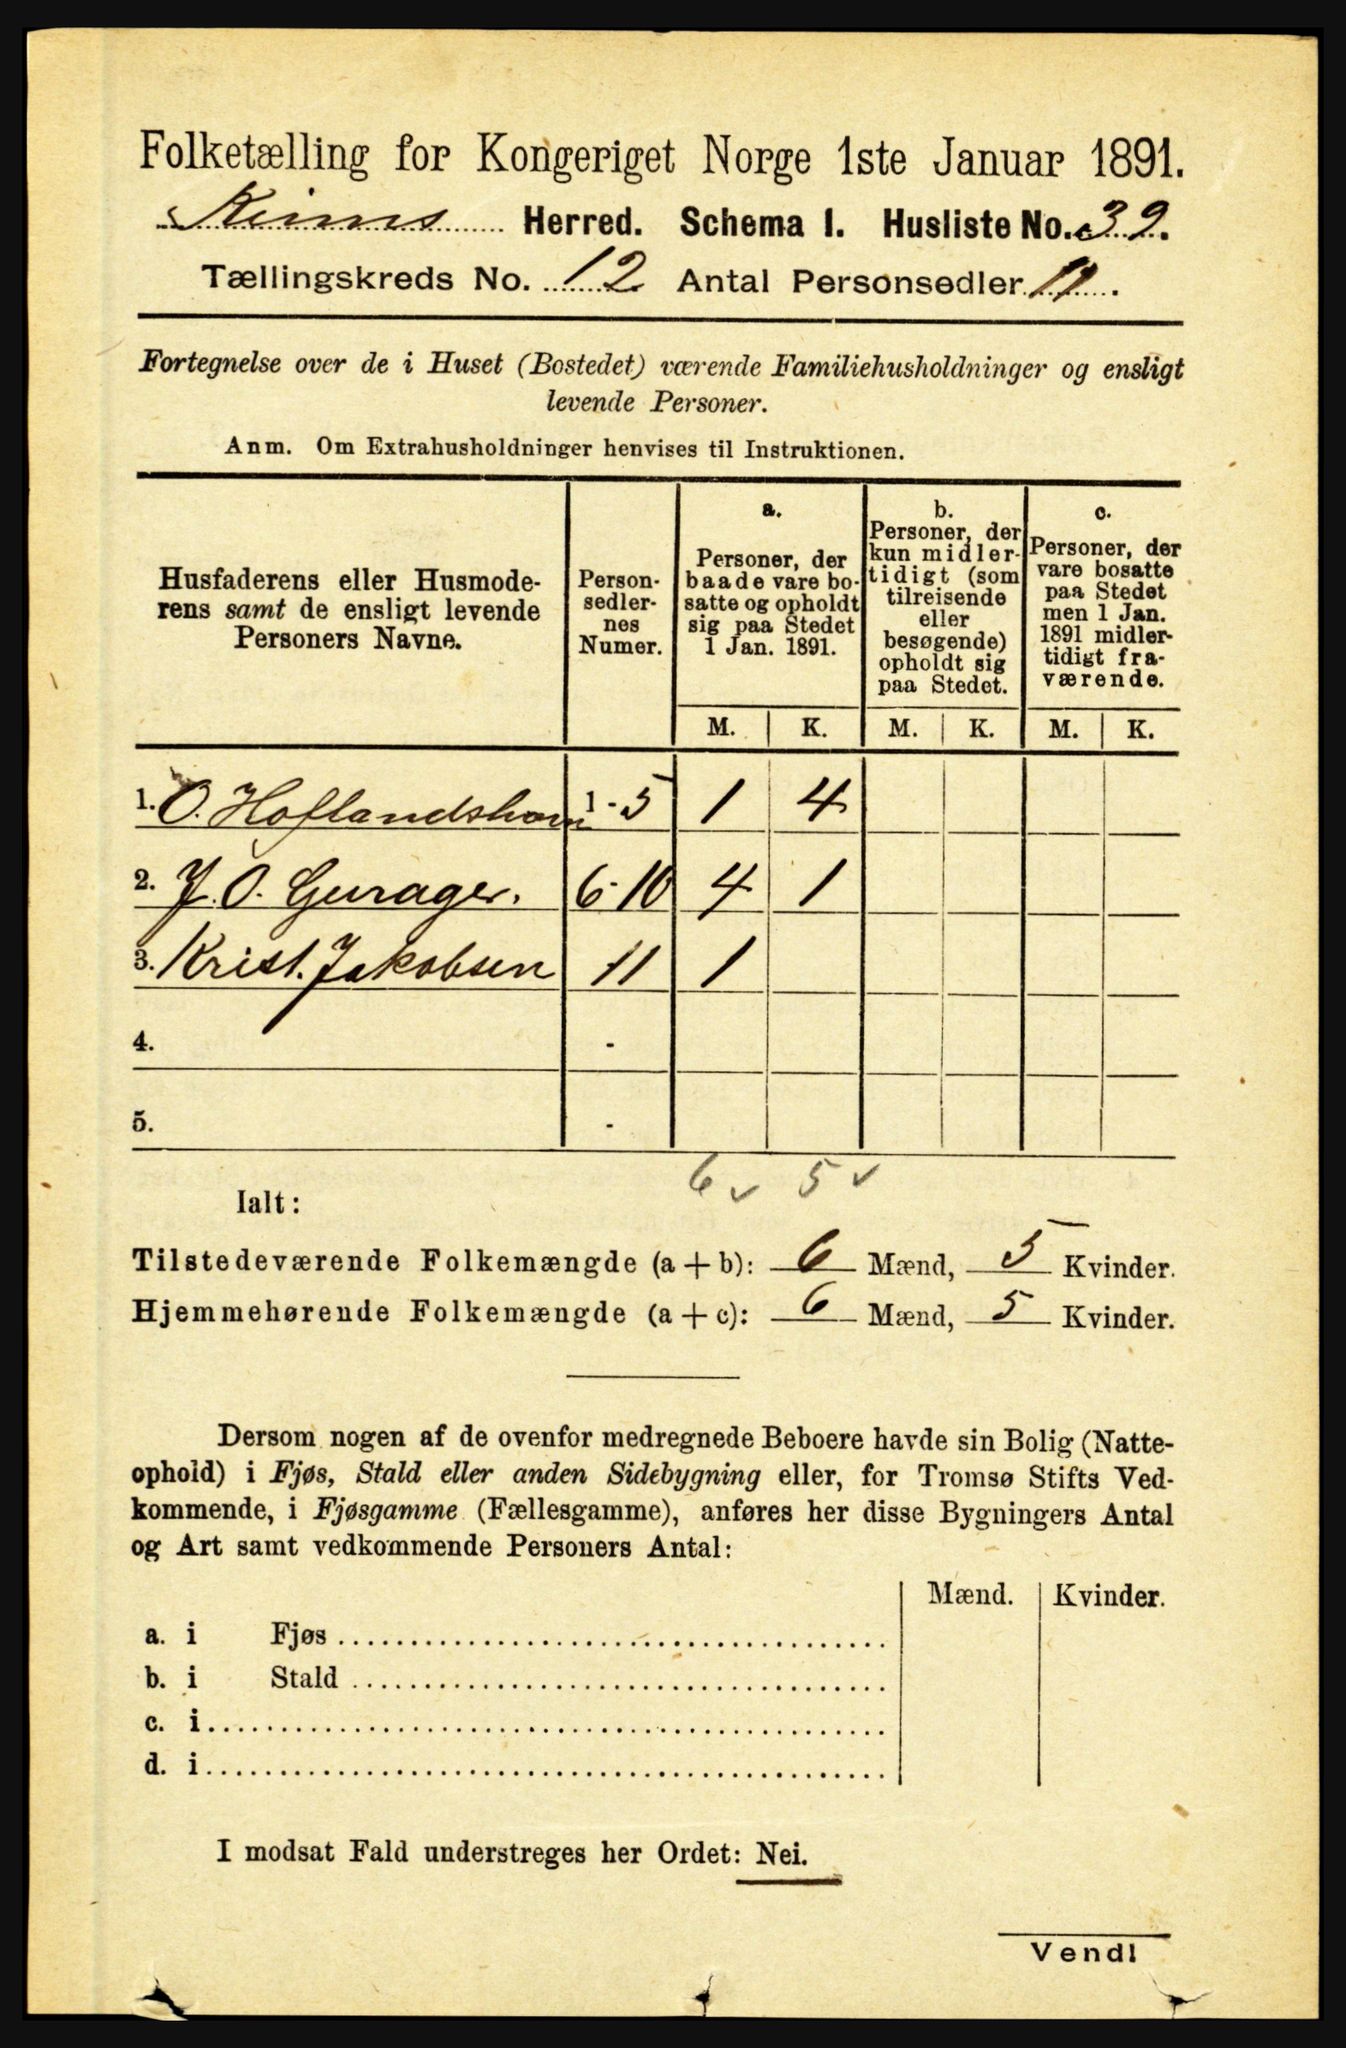 Folketælling for Kongeriget Norge 1ste Januar 1891.
Kinns Herred. Schema I. Husliste No. 39.
Tællingskreds No. 12 Antal Personsedler 11.
Fortegnelse over de i Huset (Bostedet) værende Familiehusholdninger og ensligt
levende Personer.
Anm. Om Extrahusholdninger henvises til Instruktionen.
Husfaderens eller Husmode-
rens samt de ensligt levende
Personers Navne.
Person-
sedler-
nes
Numer.
a.
Personer, der
baade vare bo-
satte og opholdt
sig paa Stedet
1 Jan. 1891.
b.
Personer, der
kun midler-
tidigt (som
tilreisende
eller
besøgende)
opholdt sig
paa Stedet.
c.
Personer, der
vare bosatte
paa Stedet
men 1 Jan.
1891 midler-
tidigt fra-
værende.
M. K. M. K. M. K.
1. O. Hoflandshavn 1-5 1 4
2. J. O. Gurager. 6-10 4 1
3. Krist. Jakobsen 11 1
4. -
5. -
6 v 5 v
Ialt:
Tilstedeværende Folkemængde (a + b): 6 Mænd, 5 Kvinder.
Hjemmehørende Folkemængde (a + c): 6 Mænd, 5 Kvinder.
Dersom nogen af de ovenfor medregnede Beboere havde sin Bolig (Natte-
ophold) i Fjøs, Stald eller anden Sidebygning eller, for Tromsø Stifts Ved-
kommende, i Fjøsgamme (Fællesgamme), anføres her disse Bygningers Antal
og Art samt vedkommende Personers Antal:
Mænd. Kvinder.
a. i Fjøs
b. i Stald
c. i
d. i
I modsat Fald understreges her Ordet: Nei.
Vend!